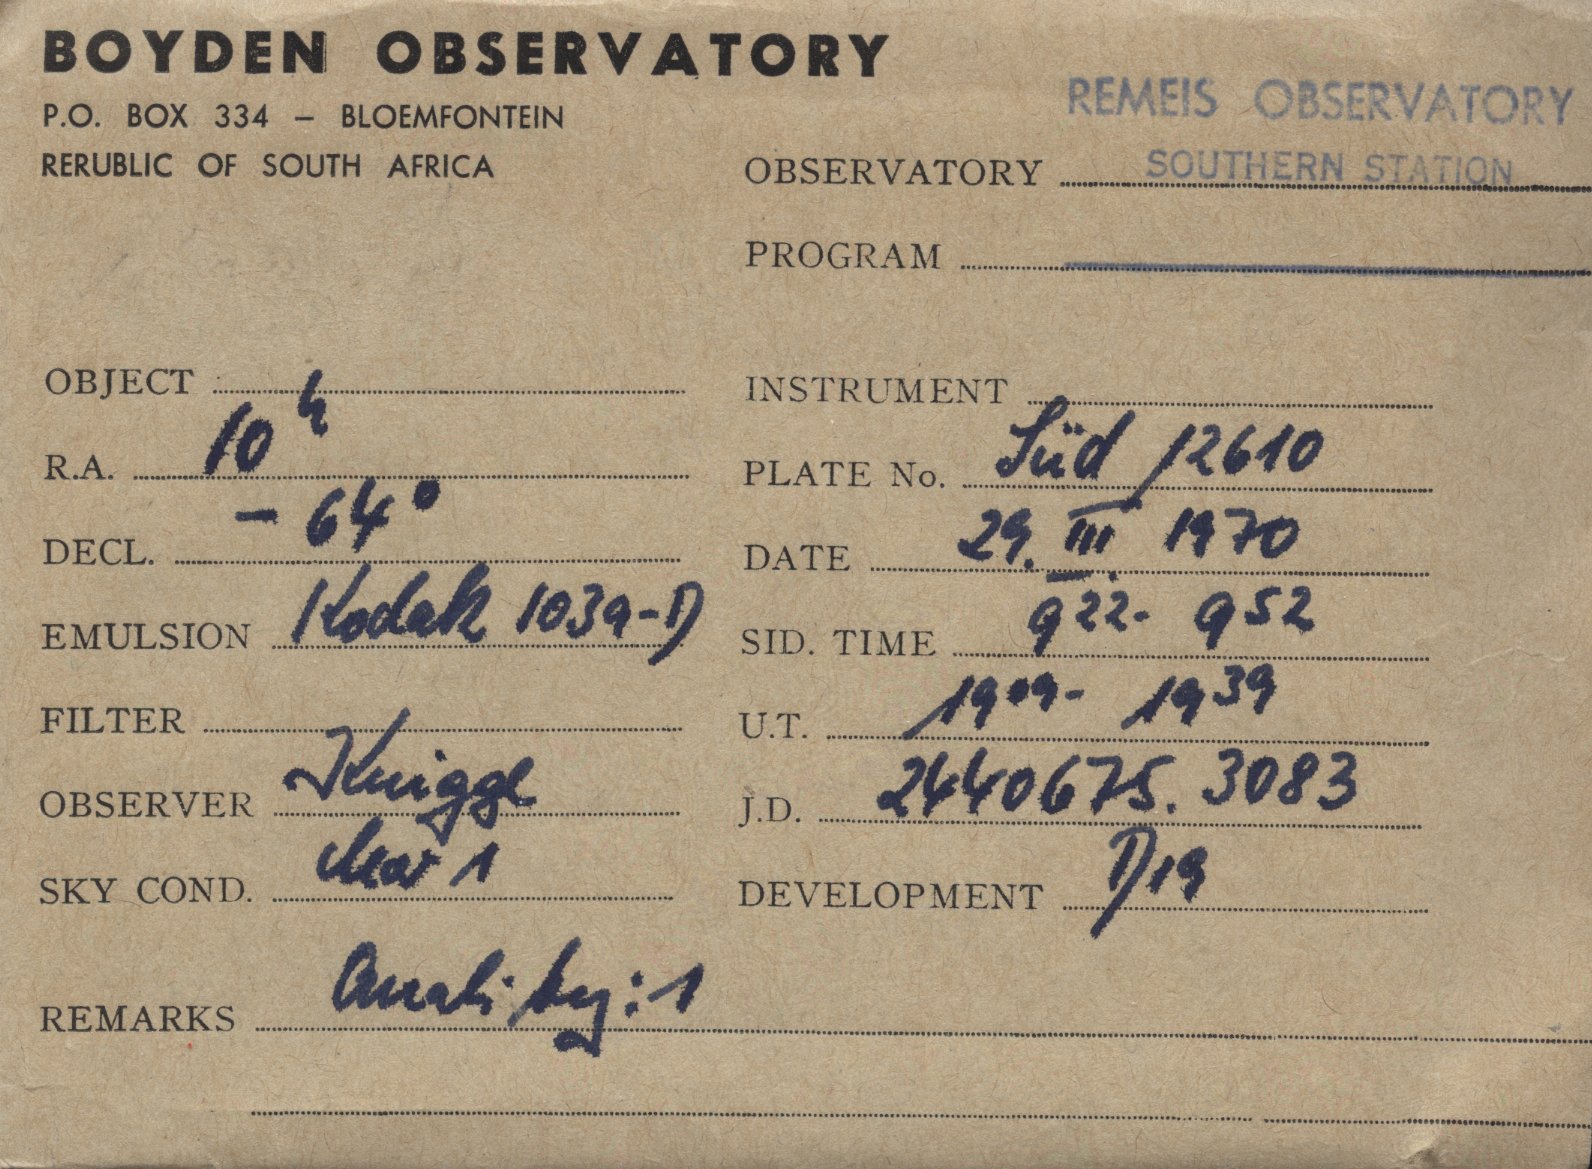 BOYDEN OBSERVATORY
P.O. BOX 334 – BLOEMFONTEIN
RERUBLIC OF SOUTH AFRICA
REMEIS OBSERVATORY
OBSERVATORY SOUTHERN STATION
PROGRAM
OBJECT
R.A. 10h
DECL. – 64°
EMULSION Kodak 103a-D
FILTER
OBSERVER Knigge
SKY COND. clear 1
INSTRUMENT
PLATE No. Süd /2610
DATE 29. III. 1970
SID. TIME 9 22 - 9 52
U.T. 19 09 - 19 39
J.D. 2440675.3083
DEVELOPMENT D19
REMARKS Quality: 1